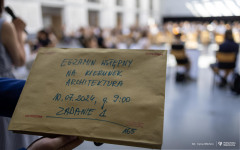 EGZAMIN WSTĘPNY
NA KIERUNEK
ARCHITEKTURA
10.07.2024, g. 9:00
ZADANIE 1